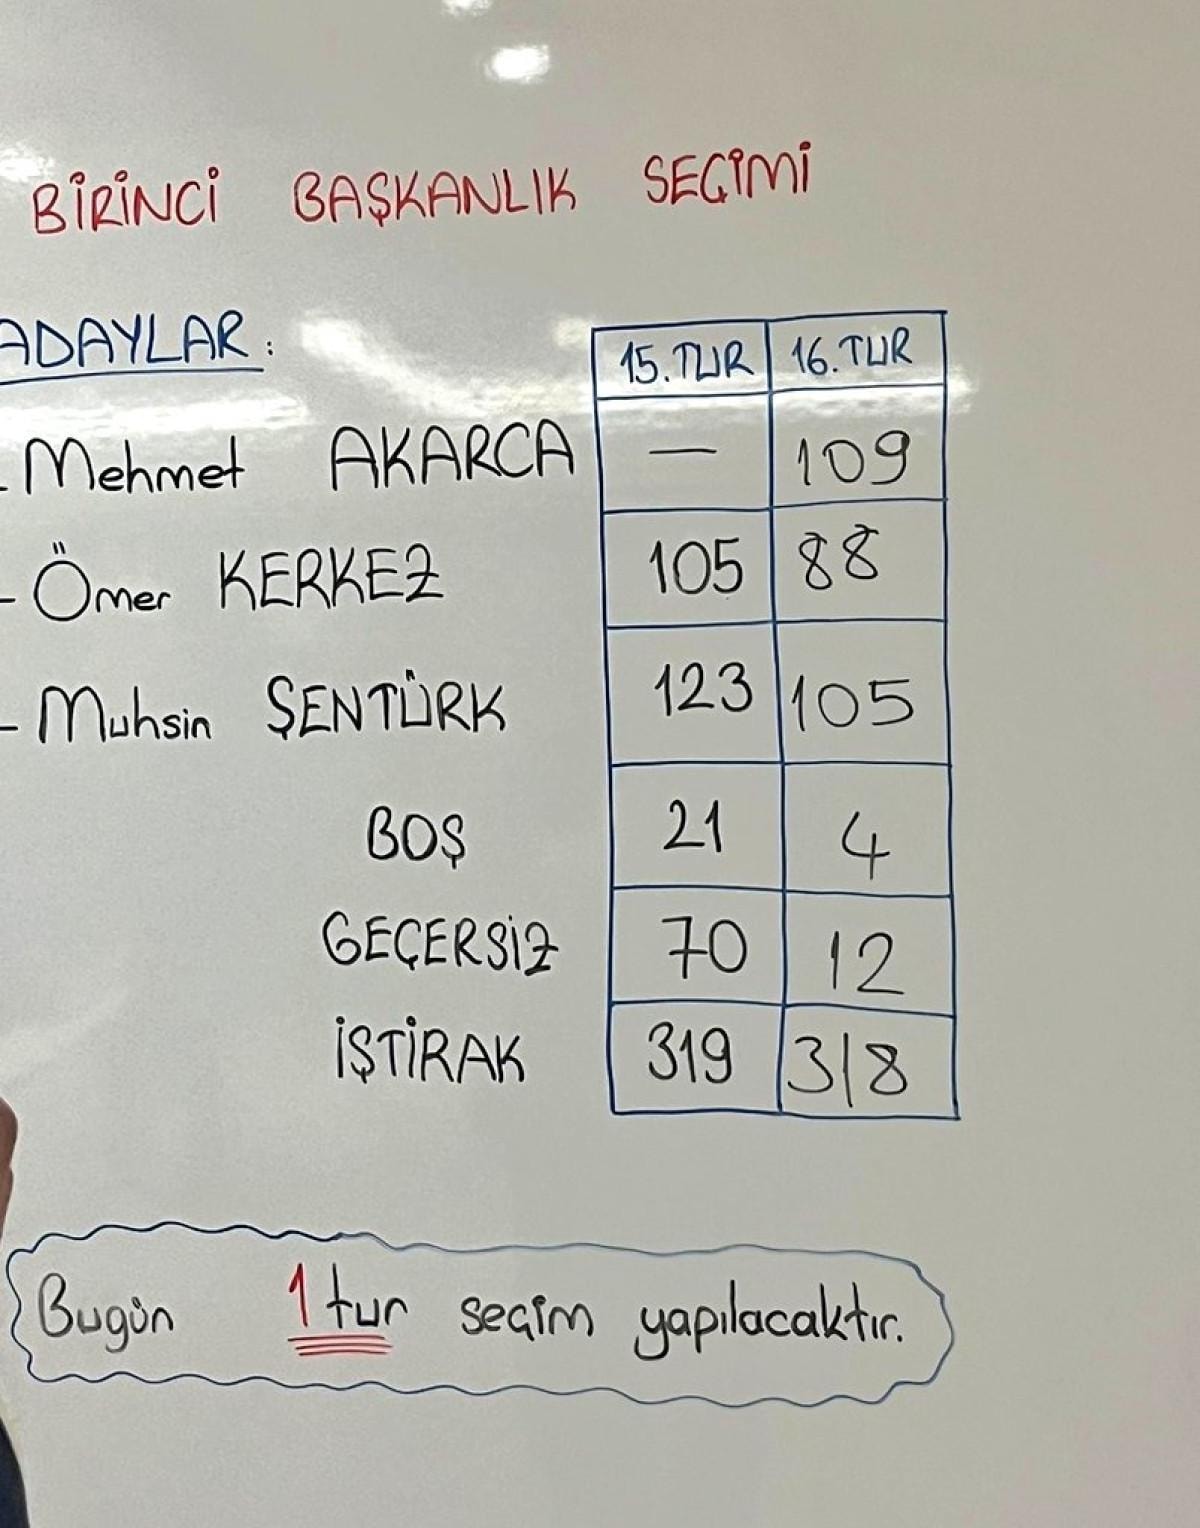 BİRİNCİ BAŞKANLIK SEÇİMİ
ADAYLAR:
15.TUR 16.TUR
- Mehmet AKARCA — 109
- Ömer KERKEZ 105 88
- Muhsin ŞENTÜRK 123 105
BOŞ 21 4
GEÇERSİZ 70 12
İŞTİRAK 319 318
Bugün 1 tur seçim yapılacaktır.